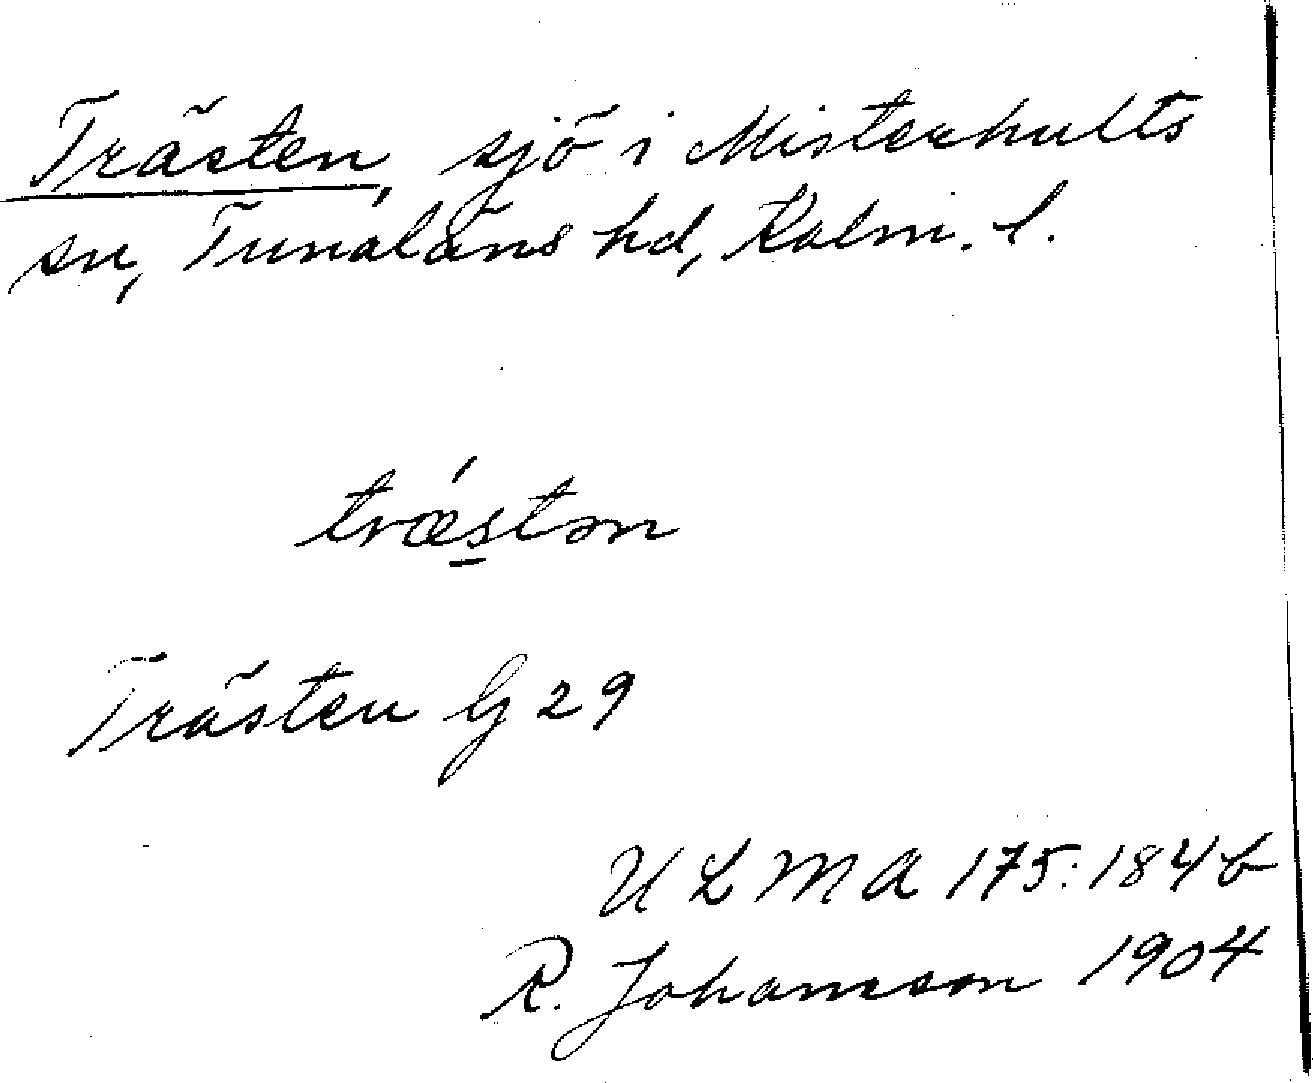 Trästen, sjö i Misterhults
sn, Tunaläns hd, Kalm. l.
træ´stən
Trästen G 29
ULMA 175:184 b
R. Johansson 1904